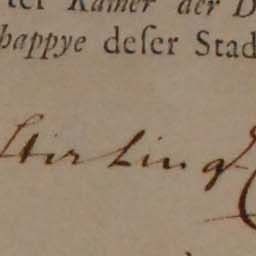 ter Kamer der D
happye deſer Stad
Stirling